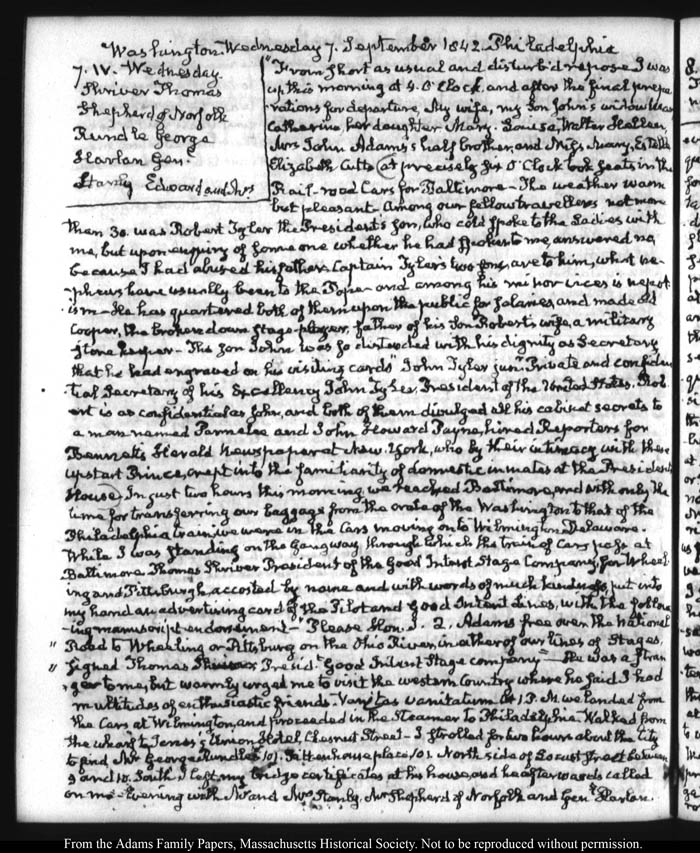 Washington Wednesday 7. September 1842. Philadelphia
7. IV. Wednesday
Shriver Thomas
Shepherd of Norfolk
Rundle George
Harlan Genl.
Stanly Edward and Mrs
From short as usual and disturb'd repose I was
up this morning at 4. O'Clock, and after the final prepa
-rations for departure, My wife, my Son John's widow
Catherine, her daughter Mary-Louisa, Walter Hellen,
Mrs John Adams's half brother, and Miss Mary, Estelle
Elizabeth Cutts at precisely six O'Clock took seats in the
Rail-road Cars for Baltimore- The weather warm
but pleasant. Among our fellow travellers not more
than 30. was Robert Tyler the President's Son, who cold spoke to the Ladies with
me, but upon enquiry of some one whether he had spoken to me, answered no,
because I had abused his father. Captain Tyler's two sons, are to him, what ne-
-phews have usually been to the Pope- and among his minor vices is nepot
ism- He has quartered both of them upon the public for salaries, and made old
Cooper, the broken down Stage-player, father of his Son Robert's wife, a military
store keeper- The son John was so distended with his dignity as Secretary
that he had engraved on his visiting cards "John Tyler junr. Private and confiden
-tial Secretary of his Excellency John Tyler, President of the United States. Rob
ert is as confidential as John, and both of them divulged all his cabinet secrets to
a man named Parmelee and John Howard Payne, hired Reporters for
Bennett's Herald Newspaper at New-York, who by their intimacy with these
upstart Princes, crept into the familiarity of domestic inmates at the President's
House. In just two hours this morning we reached Baltimore, and with only the
time for transferring our baggage from the crate of the Washington to that of the
Philadelphia train, we were in the Cars moving on to Wilmington Delaware.
While I was standing on the gangway through which the train of Cars pass at
Baltimore Thomas Shriver President of the Good Intent Stage Company, for Wheel
ing and Pittsburgh, accosted by name and with words of much kindness put into
my hand an advertising card of the Pilot and Good Intent Lines, with the follow
-ing manuscript endorsement- "Please Hon. J. Q. Adams free over the National
" Road to Wheeling or Pittsburg on the Ohio River, in either of our lines of Stages,
" signed Thomas Shriver Presidt. Good Intent Stage company" He was a stran
-ger to me, but warmly urged me to visit the western Country where he said I had
multitudes of enthusiastic friends- Vanitas vanitatum. At 1 P.M. we landed from
the Cars at Wilmington, and proceeded in the Steamer to Philadelphia. Walked from
the wharf to Union Hotel, Chesnut Street- I strolled for two hours about the City
to find Mr George Rundle's 101. Rittenhouse place 101. North side of Locust Street between
9 and 10. South I left my bridge certificates at his house, and he afterwards called
on me- Evening with Mr and Mrs Stanly, Mr Shepherd of Norfolk and Genl. Harlan.
From the Adams Family Papers, Massachusetts Historical Society. Not to be reproduced without permission.